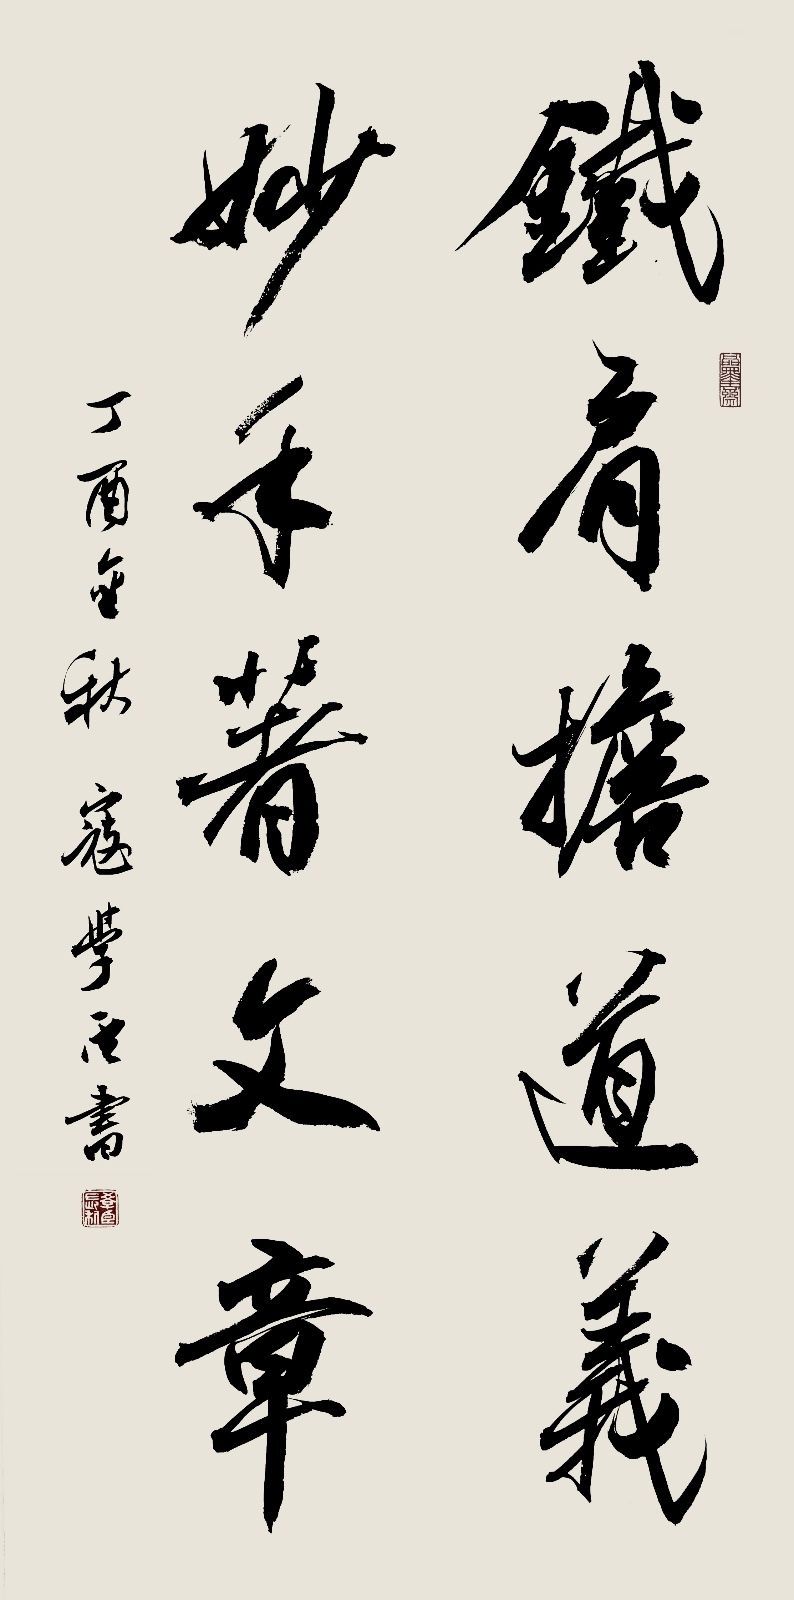 鐵肩擔道義
妙手著文章
丁酉金秋 寇學臣書